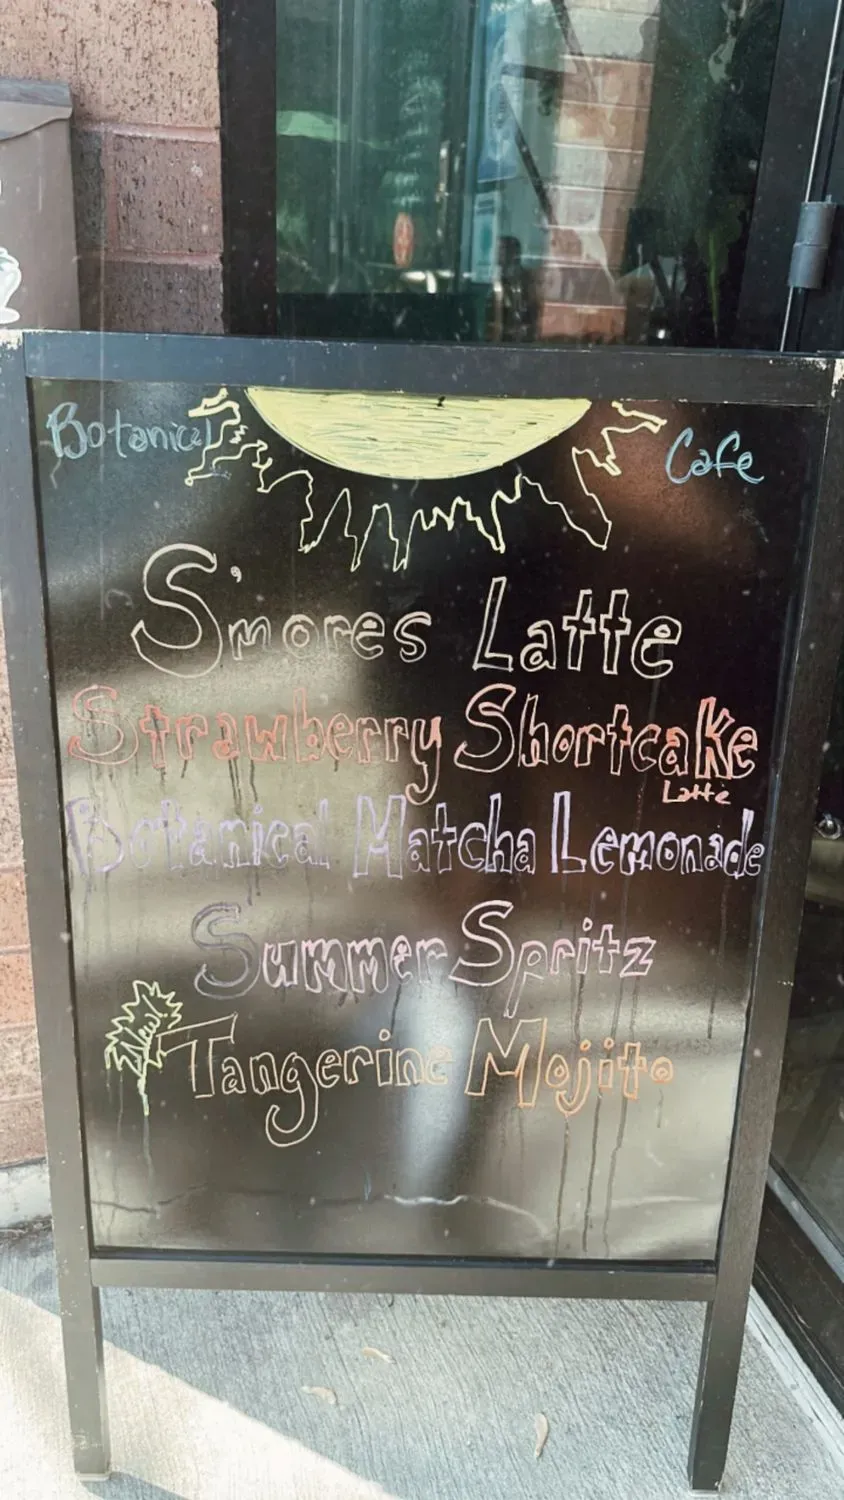 Botanical Cafe
S'mores Latte
Strawberry Shortcake
Latte
Botanical Matcha Lemonade
Summer Spritz
New!
Tangerine Mojito